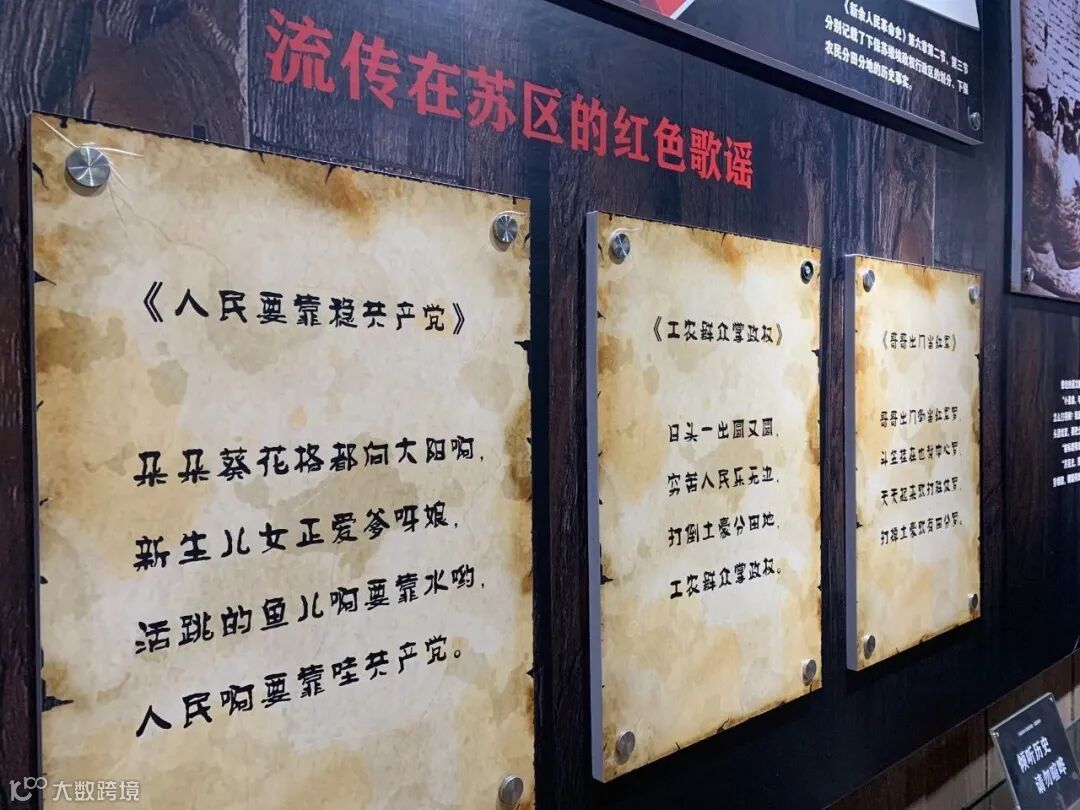 《新余人民革命史》第六章第二节、第三节
分别记载了下保苏维埃政权行政区的划分、下保
农民分田分地的历史事实。
流传在苏区的红色歌谣
《人民要靠稳共产党》
朵朵葵花格都向大阳啊，
新生儿女正爱爹呀娘，
活跳的鱼儿啊要靠水哟，
人民啊要靠哇共产党。
《工农群众掌政权》
日头一出圆又圆，
穷苦人民乐无边，
打倒土豪分田地，
工农群众掌政权。
《哥哥出门当红军》
哥哥出门当红军罗，
斗笠挂在也背中心罗，
天天起来就打胜仗罗，
打掉土豪就有田分罗。
倾听历史
请勿喧哗
大数跨境